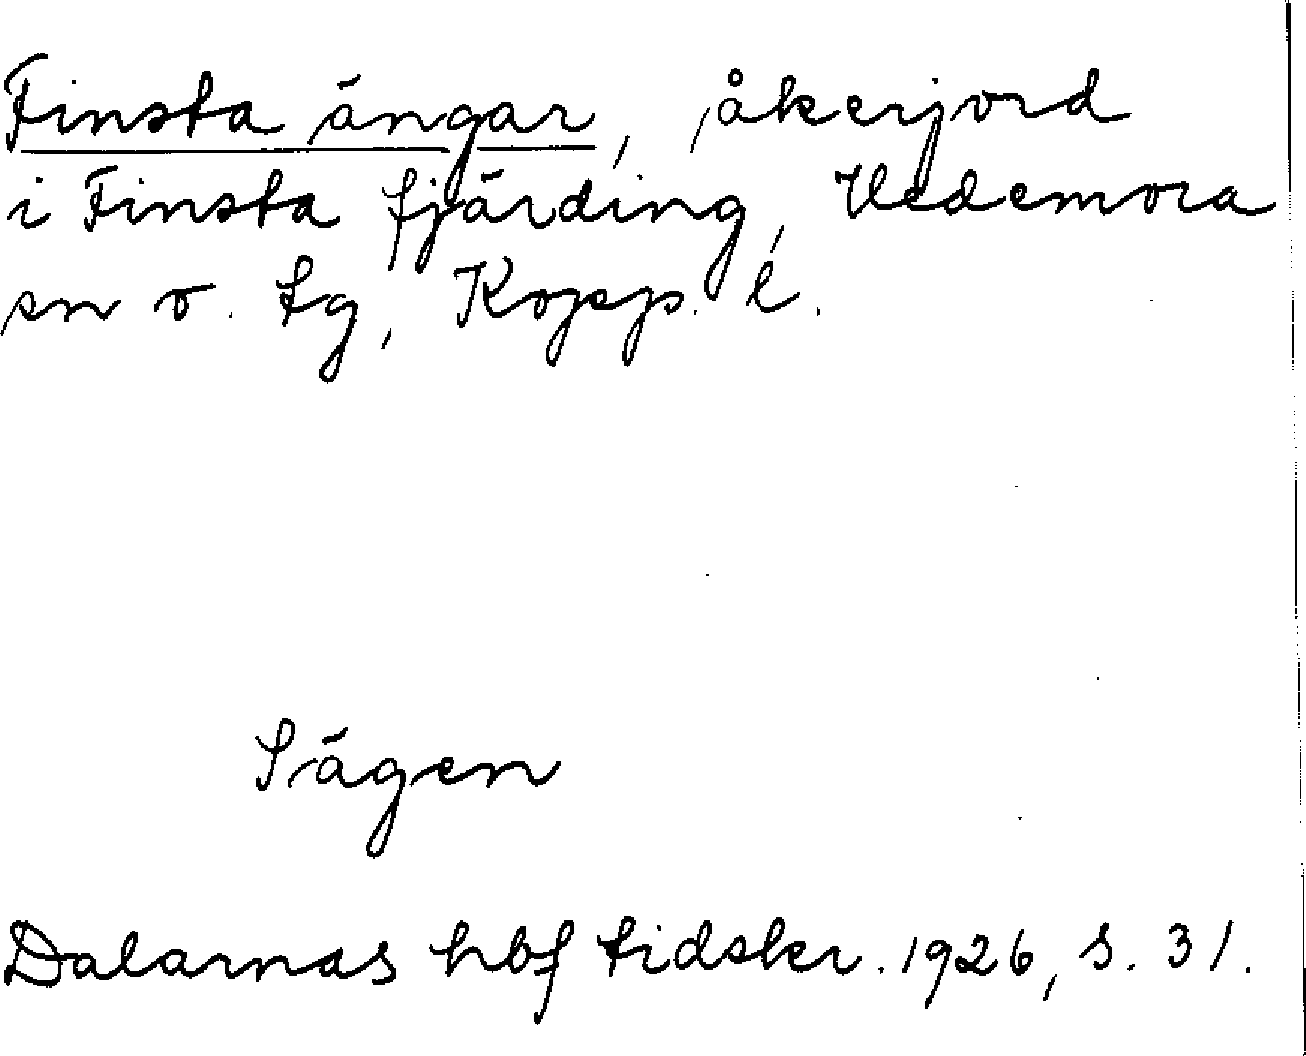 Finsta ängar, åkerjord
i Finsta fjärding, Hedemora
sn o. tg, Kopp. l.
Sägen
Dalarnas hbf tidskr. 1926, s. 31.